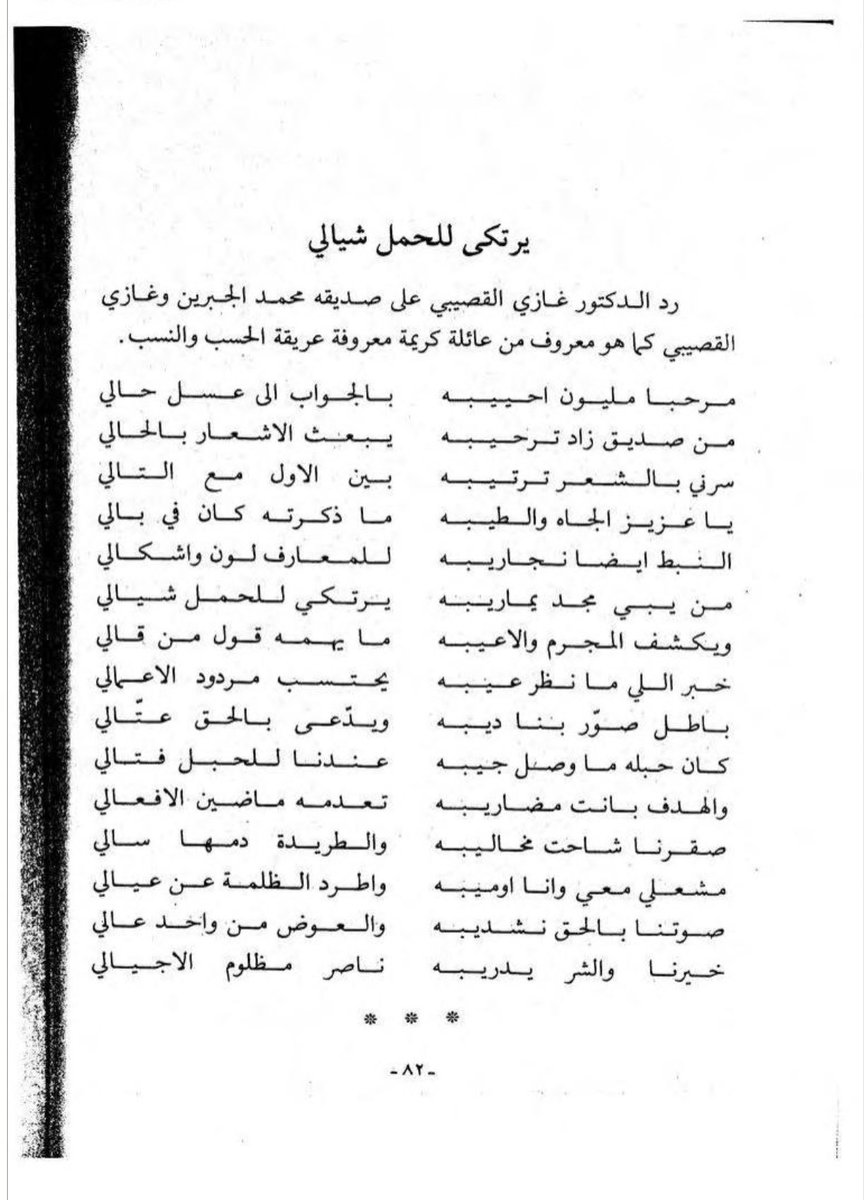 يرتكى للحمل شيالي
رد الدكتور غازي القصيبي على صديقه محمد الجبرين وغازي
القصيبي كما هو معروف من عائلة كريمة معروفة عريقة الحسب والنسب.
مرحبا مليون احييبه بالجواب الى عسل حالي
من صديق زاد ترحيبه يبعث الاشعار بالحالي
سرني بالشعر ترتيبه بين الاول مع التالي
يا عزيز الجاه والطيبه ما ذكرته كان في بالي
النبط ايضا نجاريبه للمعارف لون واشكالي
من يبي مجد يماريبه يرتكي للحمل شيالي
ويكشف المجرم والاعيبه ما يهمه قول من قالي
خبر اللي ما نظر عيبه يحتسب مردود الاعمالي
باطل صوّر بنا ديبه ويدّعى بالحق عتّالي
كان حبله ما وصل جيبه عندنا للحبل فتالي
والهدف بانت مضاريبه تعدمه ماضين الافعالي
صقرنا شاحت مخاليبه والطريدة دمها سالي
مشعلي معي وانا اوميبه واطرد الظلمة عن عيالي
صوتنا بالحق نشديبه والعوض من واحد عالي
خيرنا والشر يدريبه ناصر مظلوم الاجيالي
* * *
- ٨٢ -